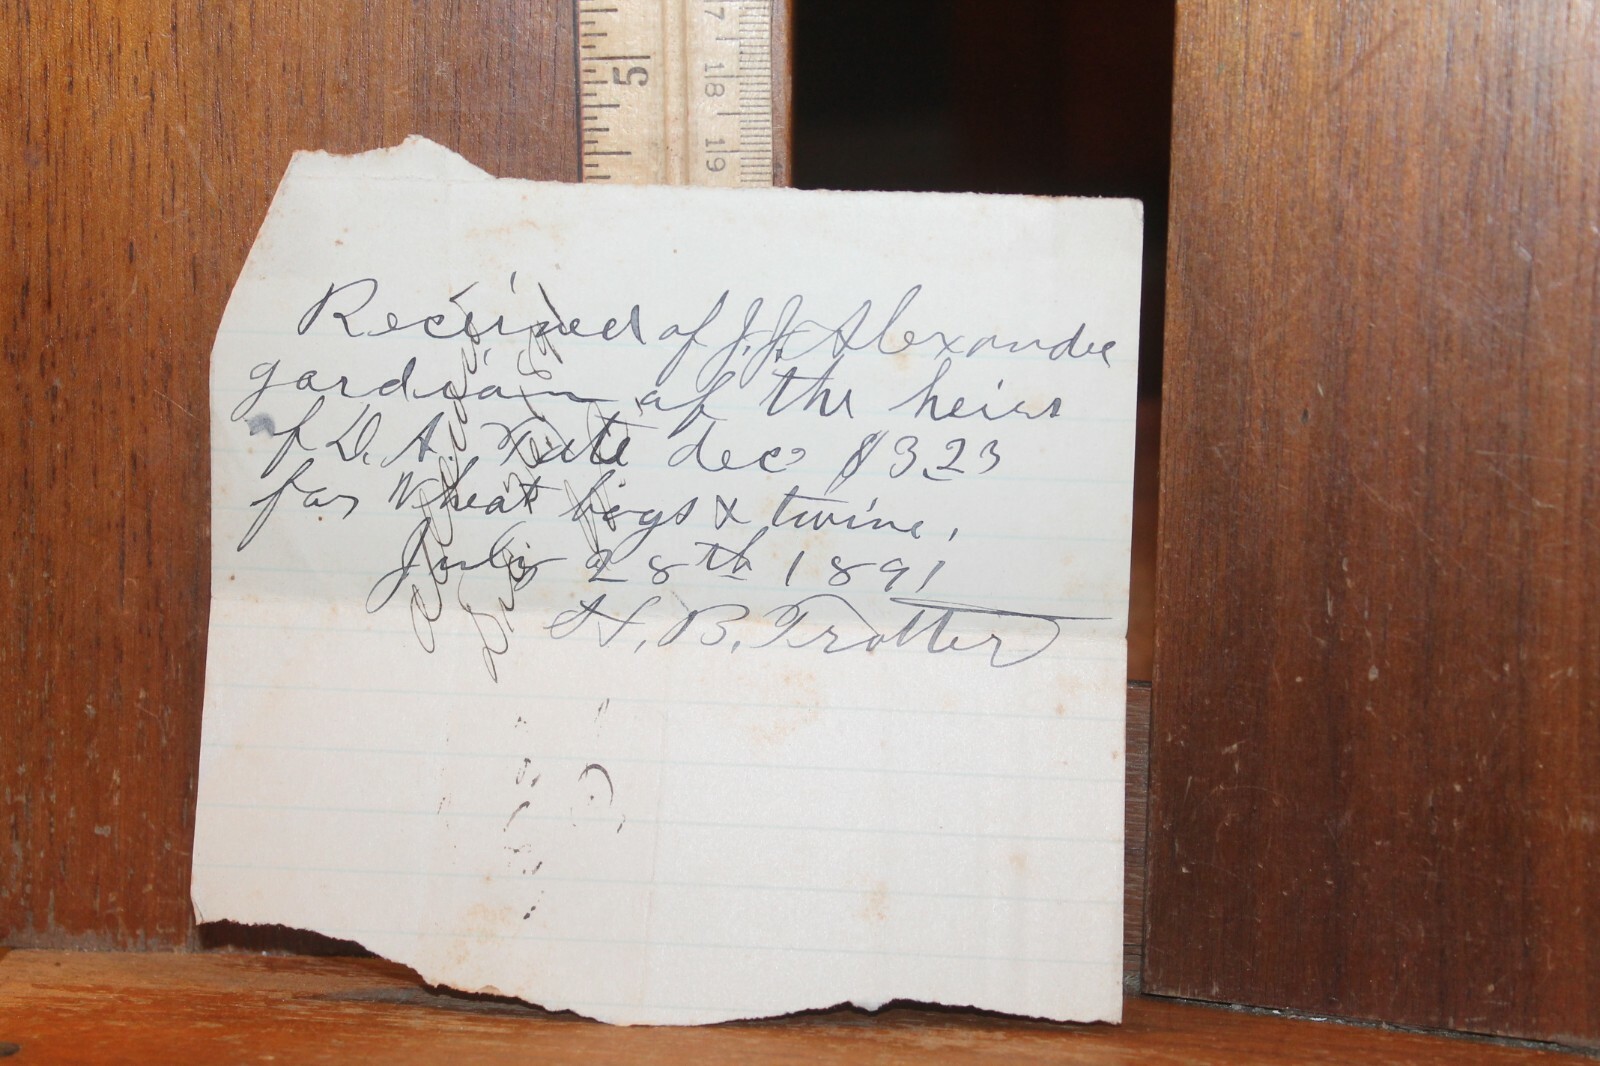 5
17
18
19
Received of J. J. Alexander
gardian of the heirs
of D. A. dec $323
for Wheat bags & twine.
July 28th 1891
H. B. Trotter